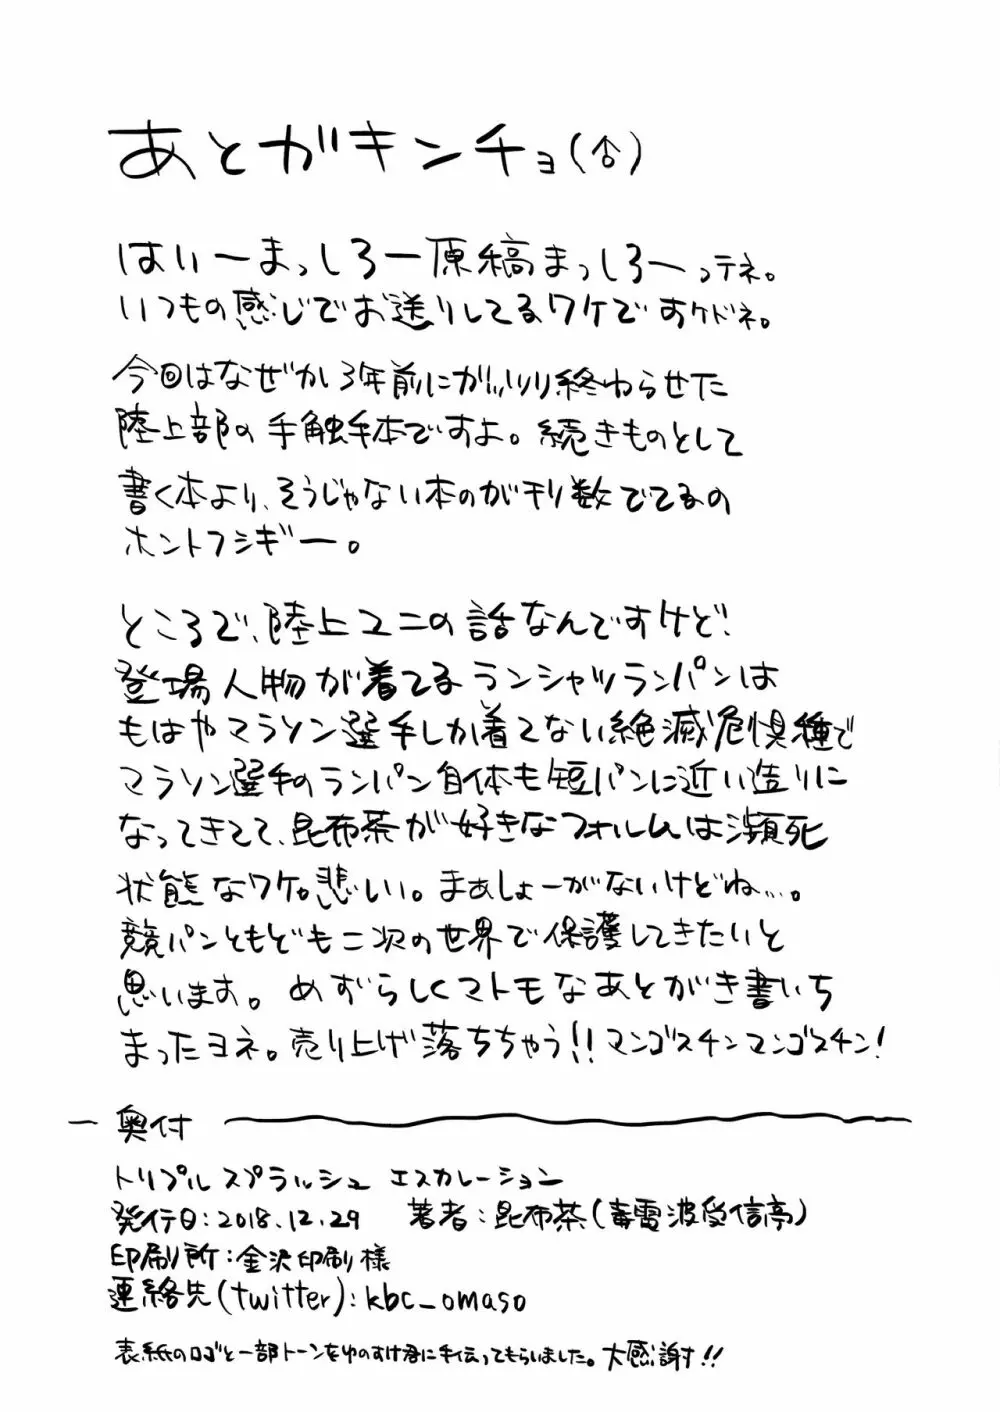 あとガキンチョ(♂)
はいーまっしろー原稿まっしろーってネ。
いつもの感じでお送りしてるワケですケドネ。
今回はなぜか3年前にガッツリ終わらせた
陸上部の手触手本ですよ。続きものとして
書く本より、そうじゃない本のが刊数でてるの
ホントフシギー。
ところで、陸上ユニの話なんですけど!
登場人物が着てるランシャツランパンは
もはやマラソン選手しか着てない絶滅危惧種で
マラソン選手のランパン自体も短パンに近い造りに
なってきてて、昆布茶が好きなフォルムは瀕死
状態なワケ。悲しい。まぁしょーがないけどね…。
競パンともども二次の世界で保護してきたいと
思います。めずらしくマトモなあとがき書いち
まったヨネ。売り上げ落ちちゃう!!マンゴスチンマンゴスチン!
奥付
トリプルスプラッシュ エスカレーション
発行日:2018.12.29 著者:昆布茶(毒電波受信亭)
印刷所:金沢印刷様
連絡先(twitter):kbc_omaso
表紙のロゴと一部トーンをゆのすけ君に手伝ってもらいました。大感謝!!